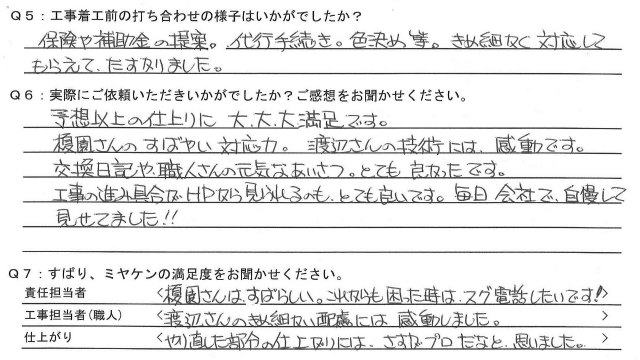 Q5：工事着工前の打ち合わせの様子はいかがでしたか？
保険や補助金の提案。代行手続き。色決め等。きめ細かく対応して
もらえて、たすかりました。
Q6：実際にご依頼いただきいかがでしたか？ご感想をお聞かせください。
予想以上の仕上りに 大、大、大満足です。
榎園さんのすばやい対応力。渡辺さんの技術には、感動です。
交換日記や、職人さんの元気なあいさつ。とても良かったです。
工事の進み具合がHPから見られるのも、とても良いです。毎日会社で、自慢して
見せてました!!
Q7：ずばり、ミヤケンの満足度をお聞かせください。
責任担当者 〈榎園さんは、すばらしい。これからも困った時は、スグ電話したいです!!〉
工事担当者(職人) 〈渡辺さんのきめ細かい配慮には 感動しました。〉
仕上がり 〈やり直した部分の仕上がりには、さすがプロだなと、思いました。〉